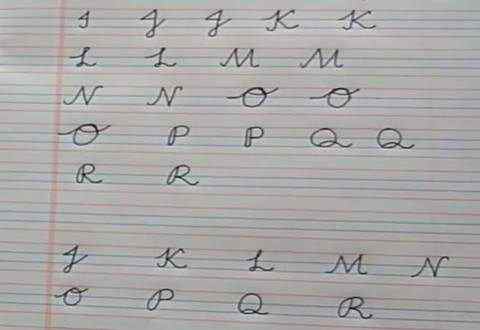 I J J K K
L L M M
N N O O
O P P Q Q
R R
J K L M N
O P Q R